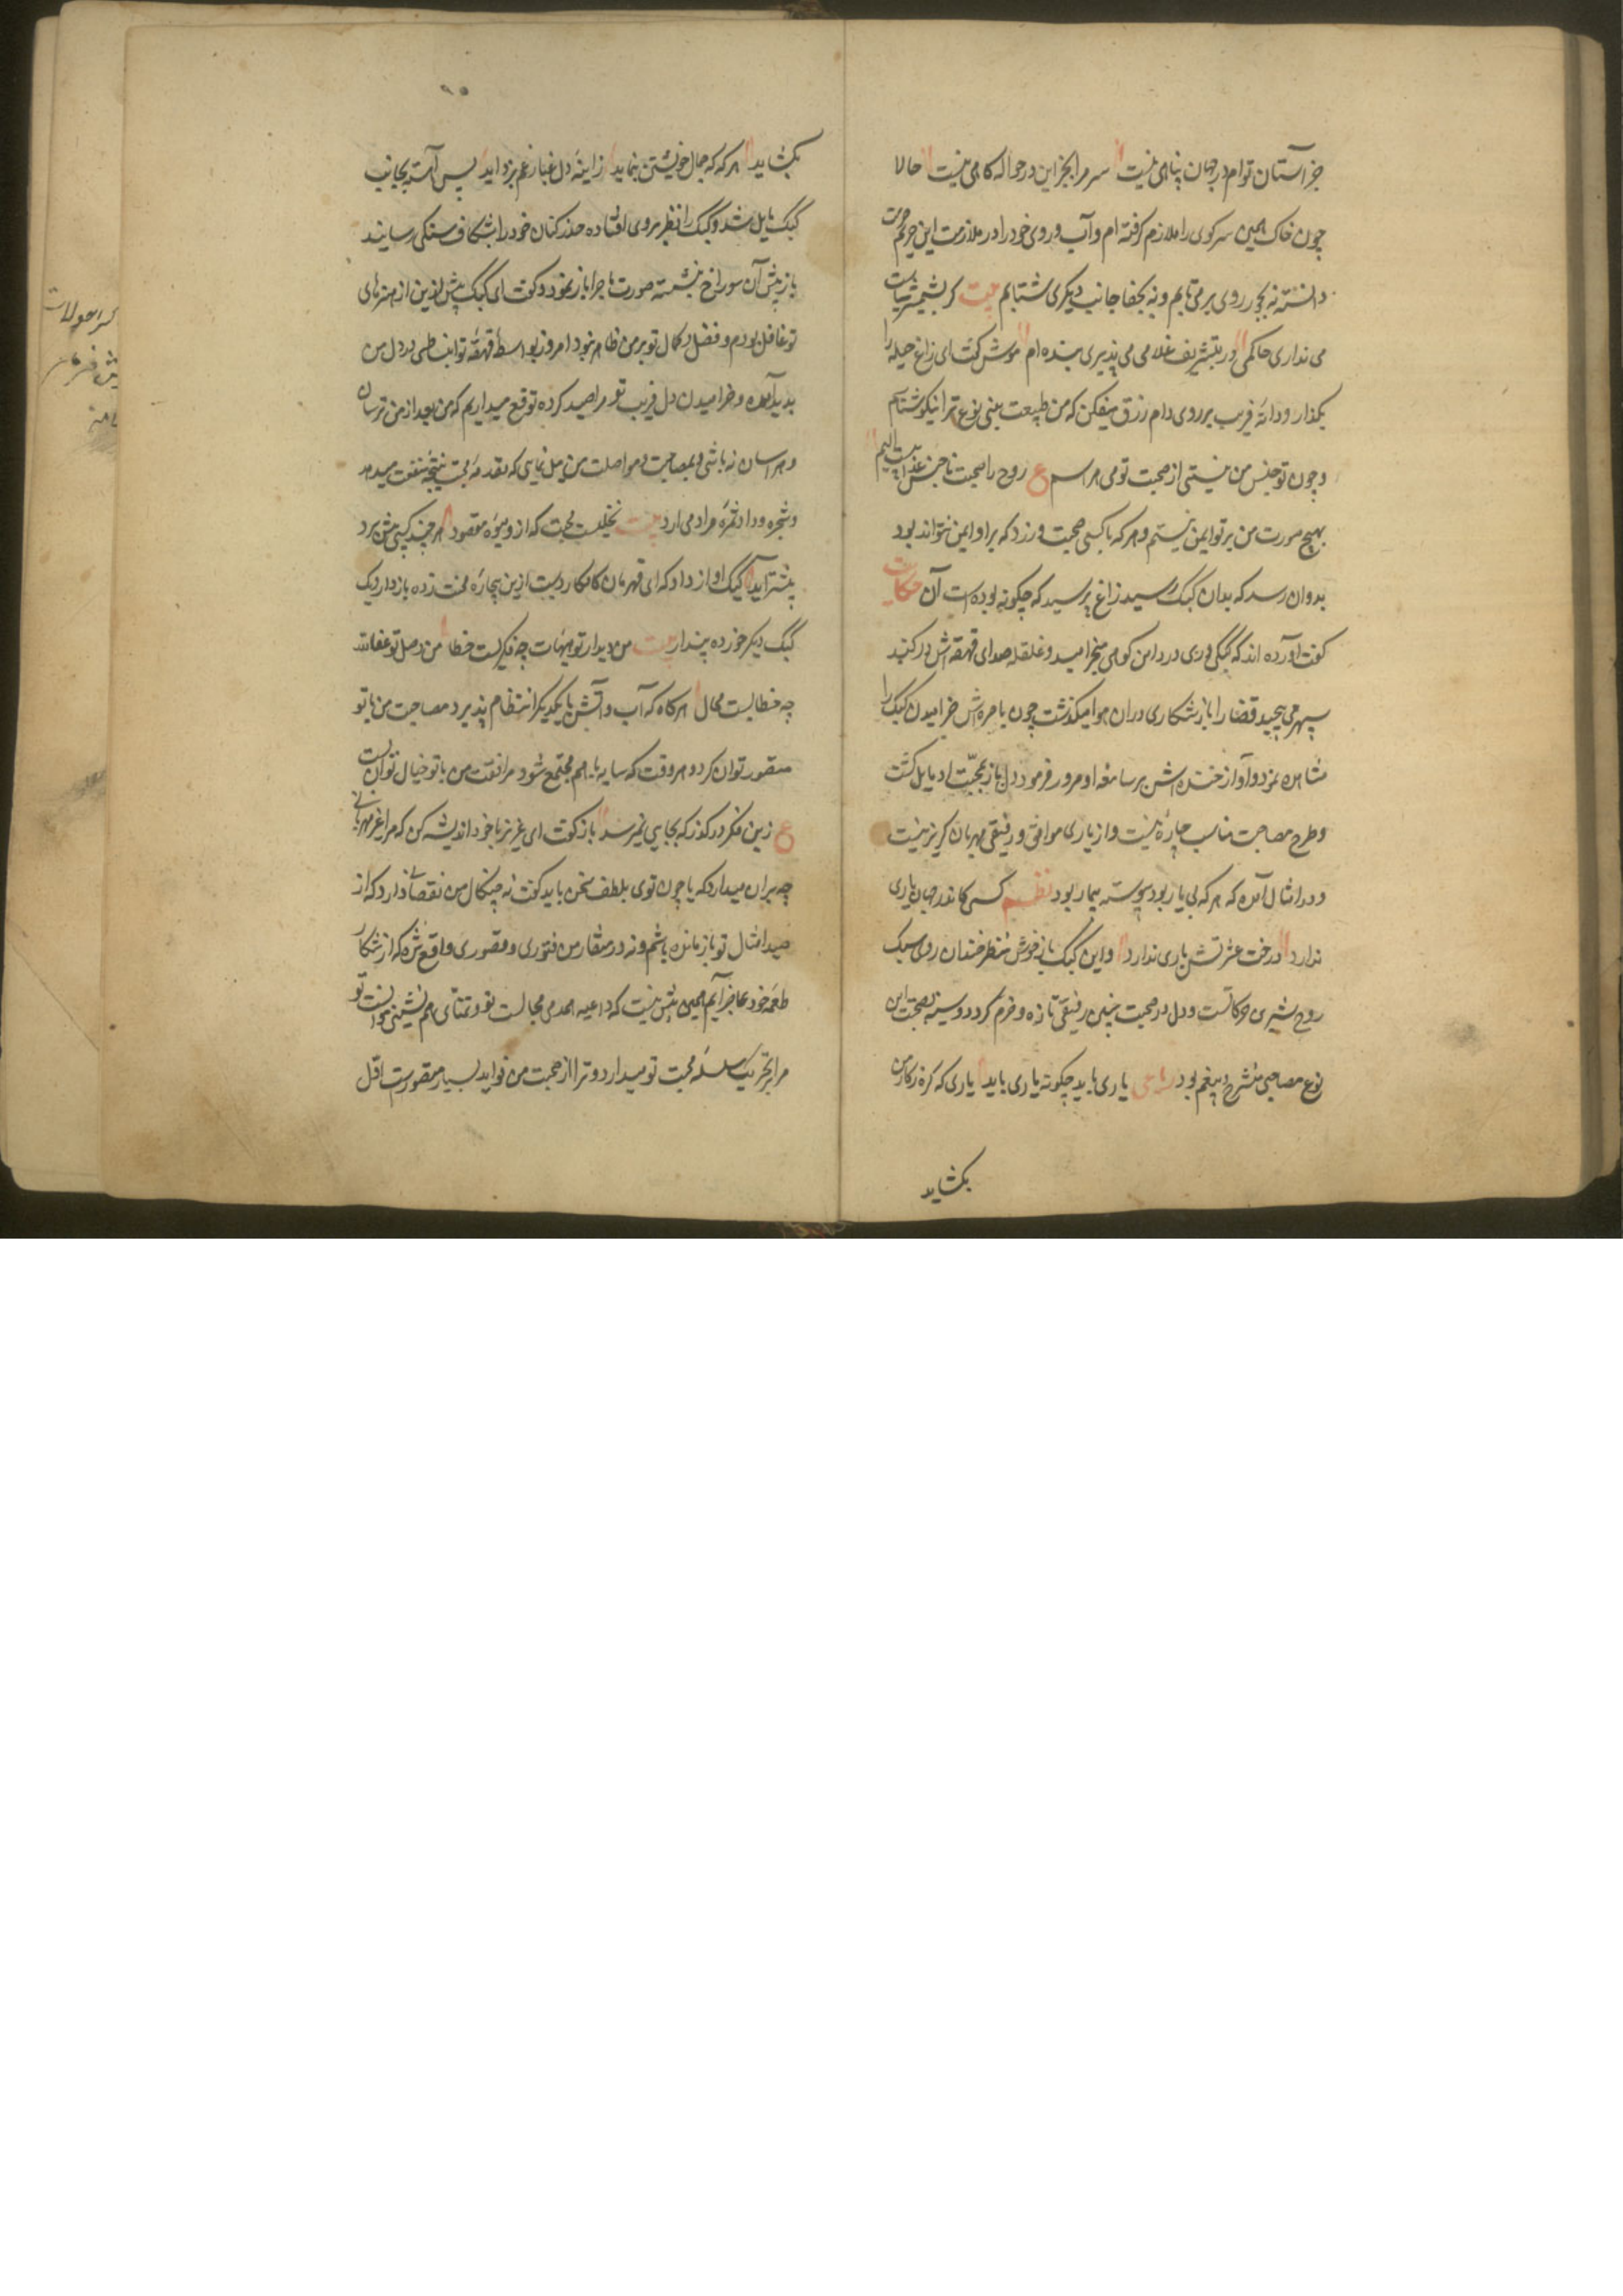 جز آستان توام در جهان پناهی نیست سر مرا بجز این در حواله گاهی نیست حالا
چون خاک همین سر کوی را ملازم گرفته ام و آب روی خود را در ملازمت این حریم حرمت
دانسته نه بجور روی بر می تابم و نه بجفا جانب دیگری شتابم بیت گر بشمشیر سیاست
می نداری حاکمی ور بتشریف غلامی می پذیری بنده ام موش گفت ای زاغ حیله را
بگذار و دانه فریب بر روی دام زرق میفکن که من طبیعت بنی نوع ترا نیکو شناسم
و چون تو جنس من نیستی از صحبت تو می هراسم ع روح را صحبت ناجنس عذابیست الیم
بهیچ صورت من بر تو ایمن نیستم و هر که با کسی صحبت ورزد که برو ایمن نتواند بود
بدو آن رسد که بدان کبک رسید زاغ پرسید که چگونه بوده است آن حکایت
گفت آورده اند که کبکی دری در دامن کوهی میخرامید و غلغله صدای قهقهه اش در گنبد
سپهر می پیچید قضا را باز شکاری در آن هوا میگذشت چون باصره اش خرامیدن کبک را
مشاهده نمود و آواز خنده اش بر سامعه او مرور فرمود دل باز بمحبت او مایل گشت
و طرح مصاحبت مناسب چاره نیست و از یاری موافق و رفیقی مهربان گریز نیست
و در امثال آمده که هر که بی یار بود پیوسته بیمار بود نظم کسی کاندر جهان یاری
ندارد درخت عشرتش باری ندارد و این کبک باز خوش منظر خندان روی سبک
روح شیرین حرکاتست و دل در صحبت چنین رفیقی تازه و خرم گردد و سینه بصحبت این
نوع مصاحبی منشرح و بیغم بود رباعی یاری باید چگونه یاری باید یاری که گره ز کار من
بگشاید
۹۵
بگشاید هر گه که جمال خویشتن بنماید ز آینه دل غبار غم بزداید پس آهسته بجانب
کبک مایل شد و کبک را نظر بر وی افتاده حذر کنان خود را بشکاف سنگی رسانید
باز پیش آن سوراخ نشسته صورت ماجرا باز نمود و گفت ای کبک پیش ازین از هنرهای
تو غافل بودم و فضل و کمال تو بر من ظاهر نبود امروز بواسطه قهقهه تو انبساطی در دل من
پدید آمده و خرامیدن دل فریب تو مرا صید کرده توقع میداریم که من بعد از من ترسان
و هراسان نباشی و بمصاحبت و مواصلت من میل نمایی که مقدمه محبت نتیجه منفعت میدهد
و شجره وداد ثمره مراد می آرد بیت نخلیست محبت که ازو میوه مقصود هر چند کسی بیش برد
بیشتر آید کبک آواز داد که ای قهرمان کامکار دست ازین بیچاره محنت زده بازدار و یک
کبک دیگر خورده پندار بیت من و دیدار تو هیهات چه فکریست خطا من و وصل تو عفاالله
چه خطایست محال هر گاه که آب و آتش با یکدیگر انتظام پذیرد مصاحبت من با تو
متصور توان کرد و هر وقت که سایه با هم مجتمع شود مرافقت من با تو خیال توان بست
ع زین فکر درگذر که بجایی نمیرسد باز گفت ای عزیز با خود اندیشه کن که مرا غیر مهربانی
چه بر آن میدارد که با چون توی بلطف سخن باید گفت نه چنگال من نقصانی دارد که از
صید امثال تو باز مانده باشم و نه در منقار من فتوری و قصوری واقع شده که از شکار
طعمه خود عاجز آیم همین بیش نیست که داعیه همدمی مجالست تو و تمنای هم نشینی و موانست تو
مرا بتحریک سلسله محبت تو میدارد و ترا از صحبت من فواید بسیار متصورست اول